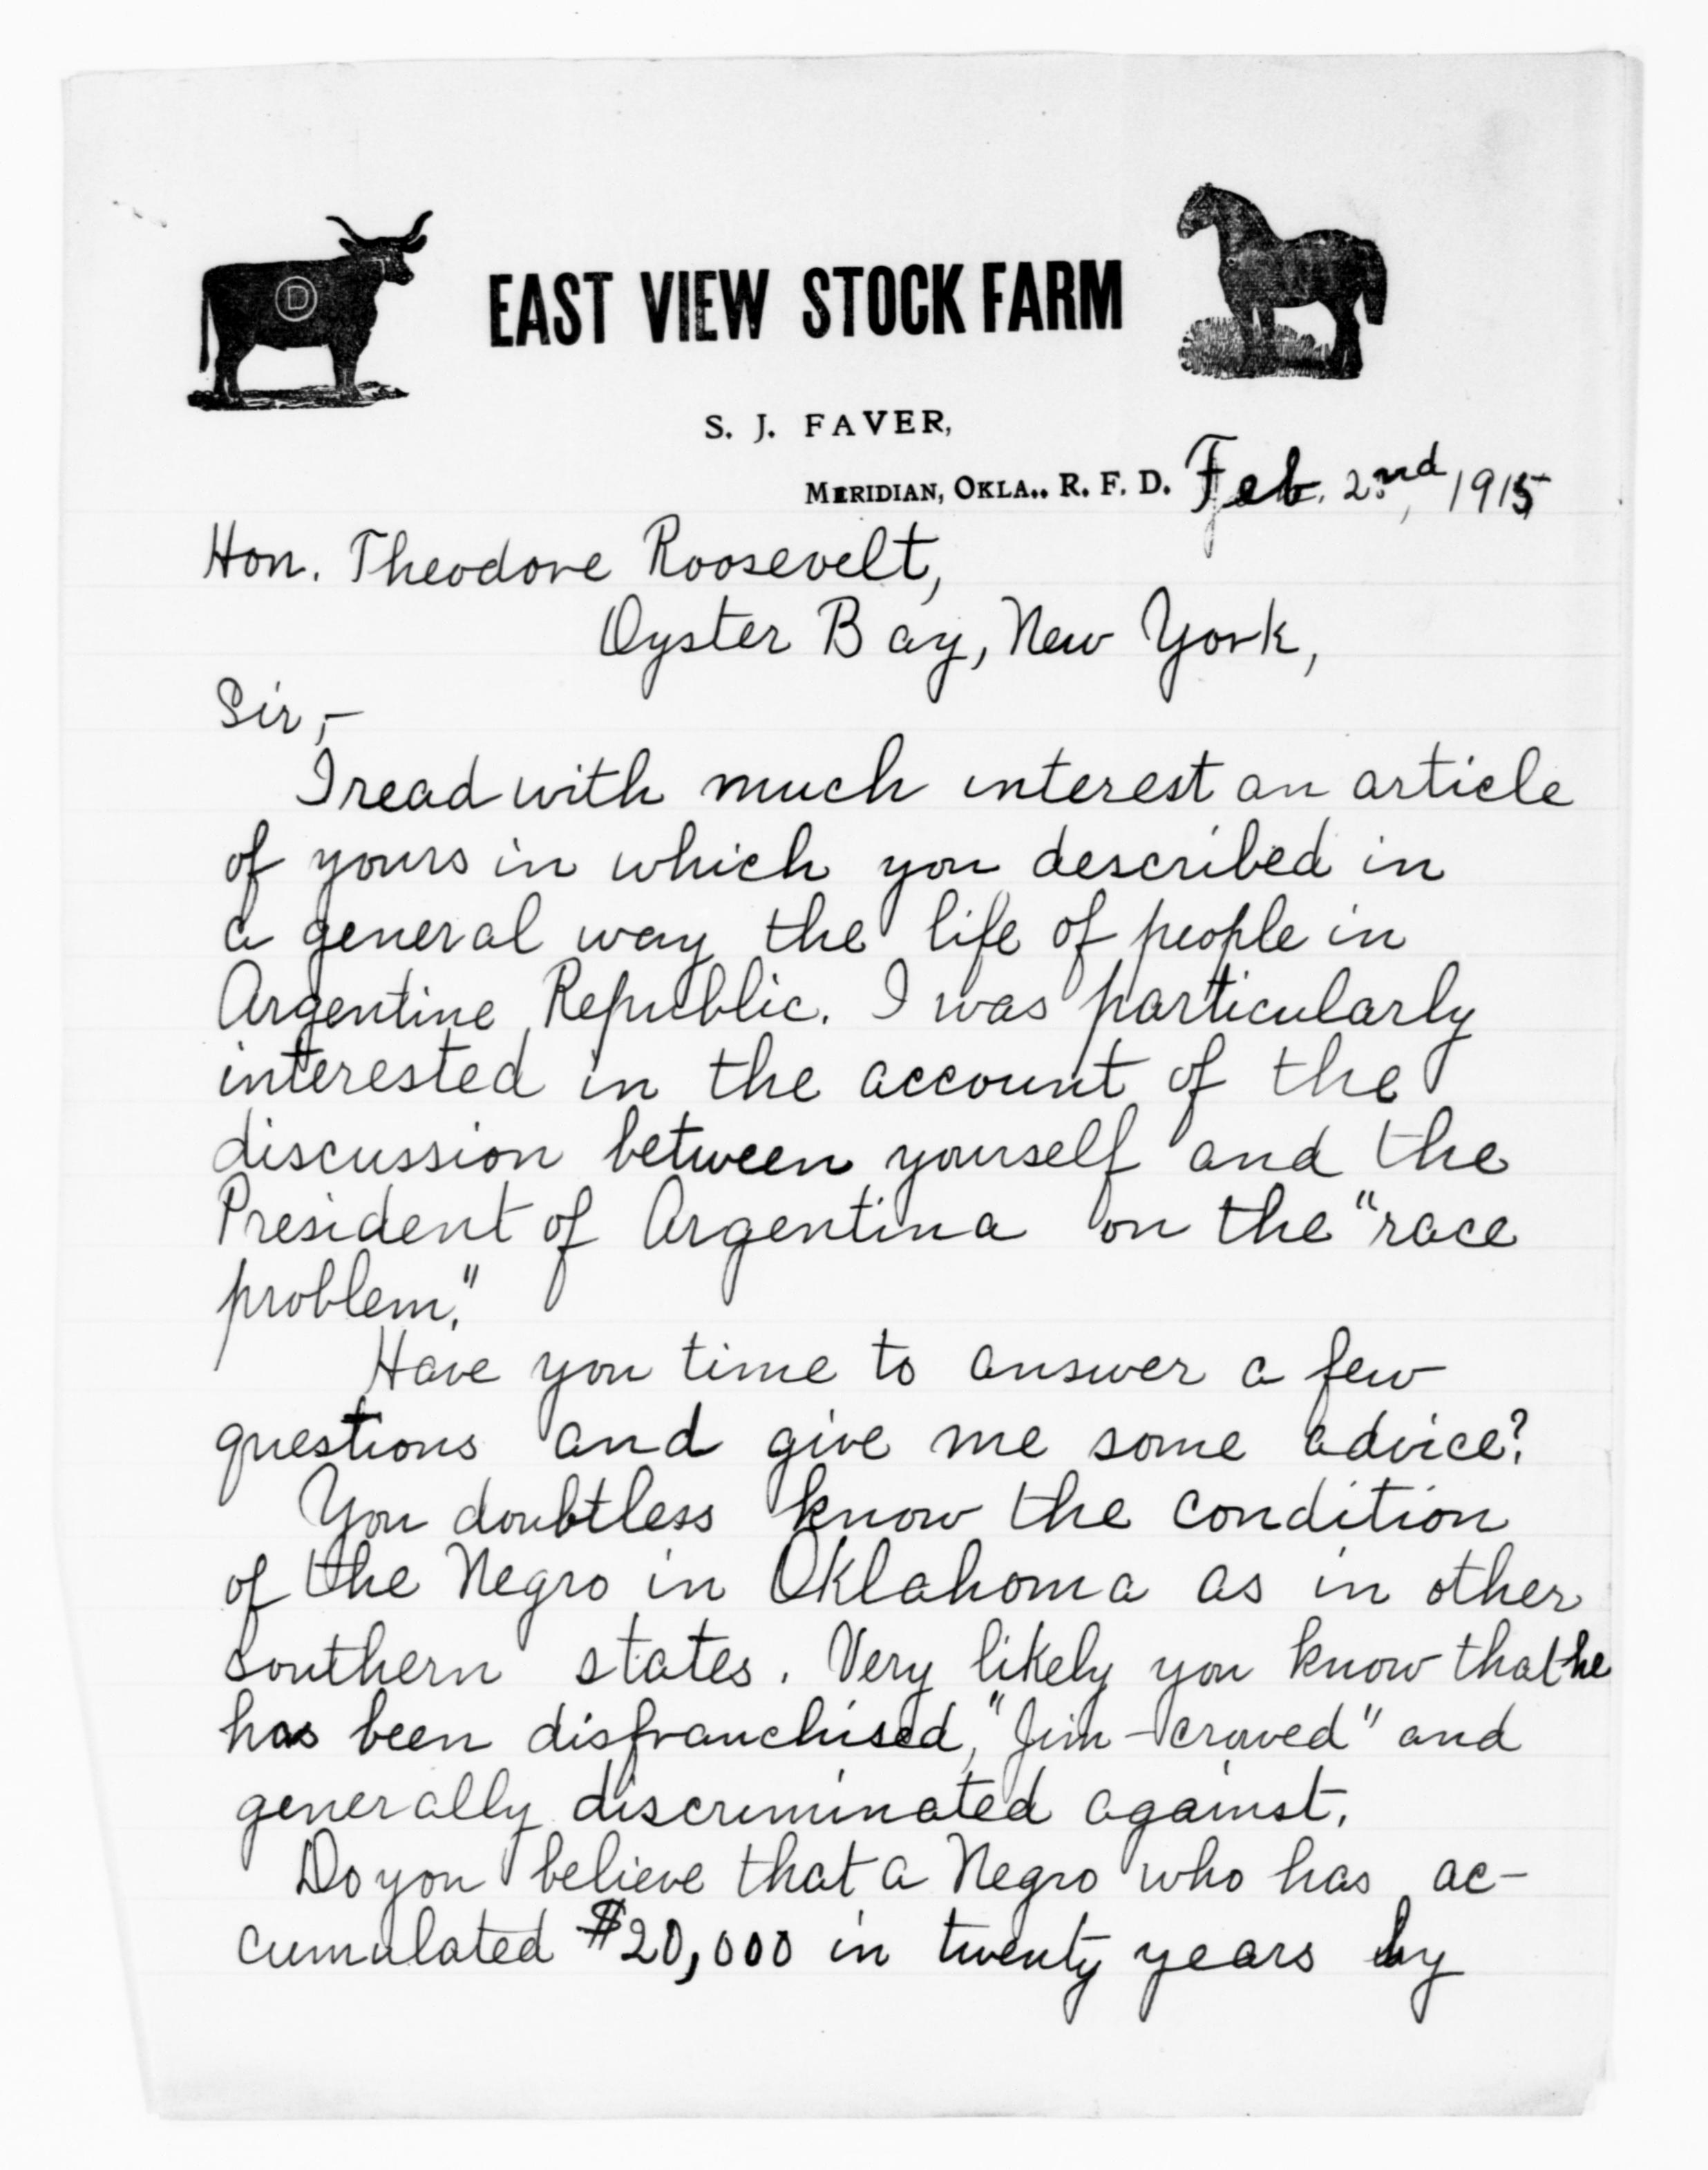 D
EAST VIEW STOCK FARM
S. J. FAVER,
MERIDIAN, OKLA.. R. F. D. Feb. 2nd, 1915
Hon. Theodore Roosevelt,
Oyster Bay, New York,
Sir,-
I read with much interest an article
of yours in which you described in
a general way the life of people in
Argentine Republic. I was particularly
interested in the account of the
discussion between yourself and the
President of Argentina on the "race
problem."
Have you time to answer a few
questions and give me some advice?
You doubtless know the condition
of the Negro in Oklahoma as in other
southern states. Very likely you know that he
has been disfranchised, "Jim-crowed" and
generally discriminated against.
Do you believe that a Negro who has ac-
cumulated $20,000 in twenty years by